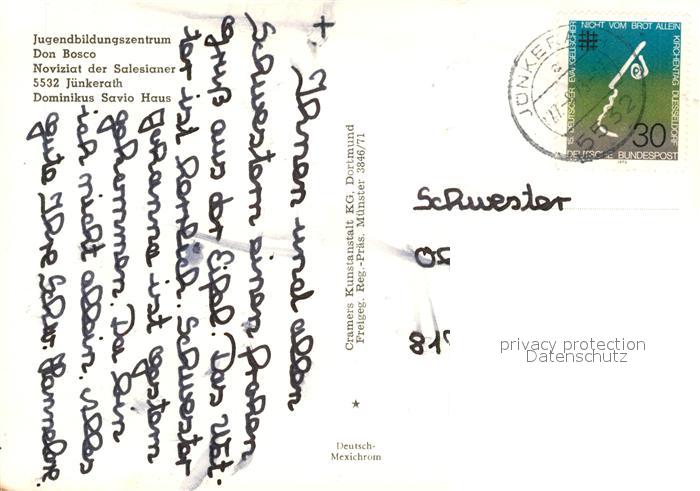 Jugendbildungszentrum
Don Bosco
Noviziat der Salesianer
5532 Jünkerath
Dominikus Savio Haus
+
Ihnen und allen
Schwestern einen frohen
Gruß aus der Eifel. Das Wet-
ter ist herrlich. Schwester
Johanna ist gestern
gekommen. Da bin
ich nicht allein. Alles
gute Ihre Schw. Hannelore.
Cramers Kunstanstalt KG, Dortmund
Freigeg. Reg.-Präs. Münster 3846/71
★
Deutsch-
Mexichrom
15. DEUTSCHER EVANGELISCHER KIRCHENTAG DUESSELDORF
NICHT VOM BROT ALLEIN
30
DEUTSCHE BUNDESPOST
JÜNKER
5532
Schwester
privacy protection
Datenschutz